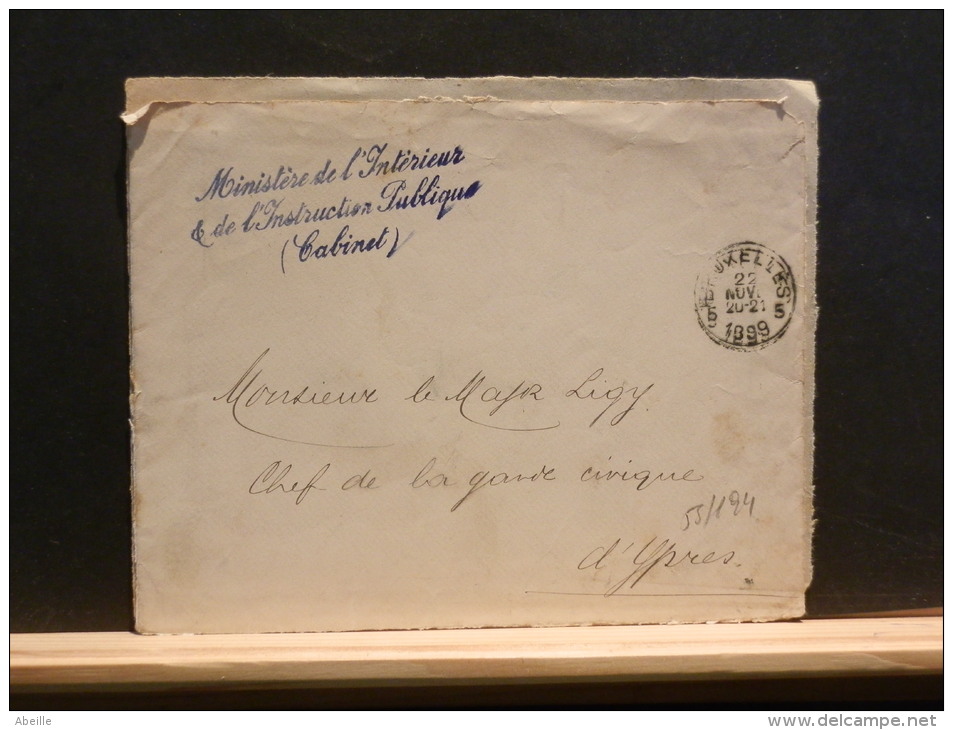 Ministère de l'Intérieur
& de l'Instruction Publique
(Cabinet)
BRUXELLES
22
NOV.
20-21
5 5
1899
Monsieur le Major Ligy
Chef de la garde civique
55/194
d'Ypres.
Abeille
www.delcampe.net